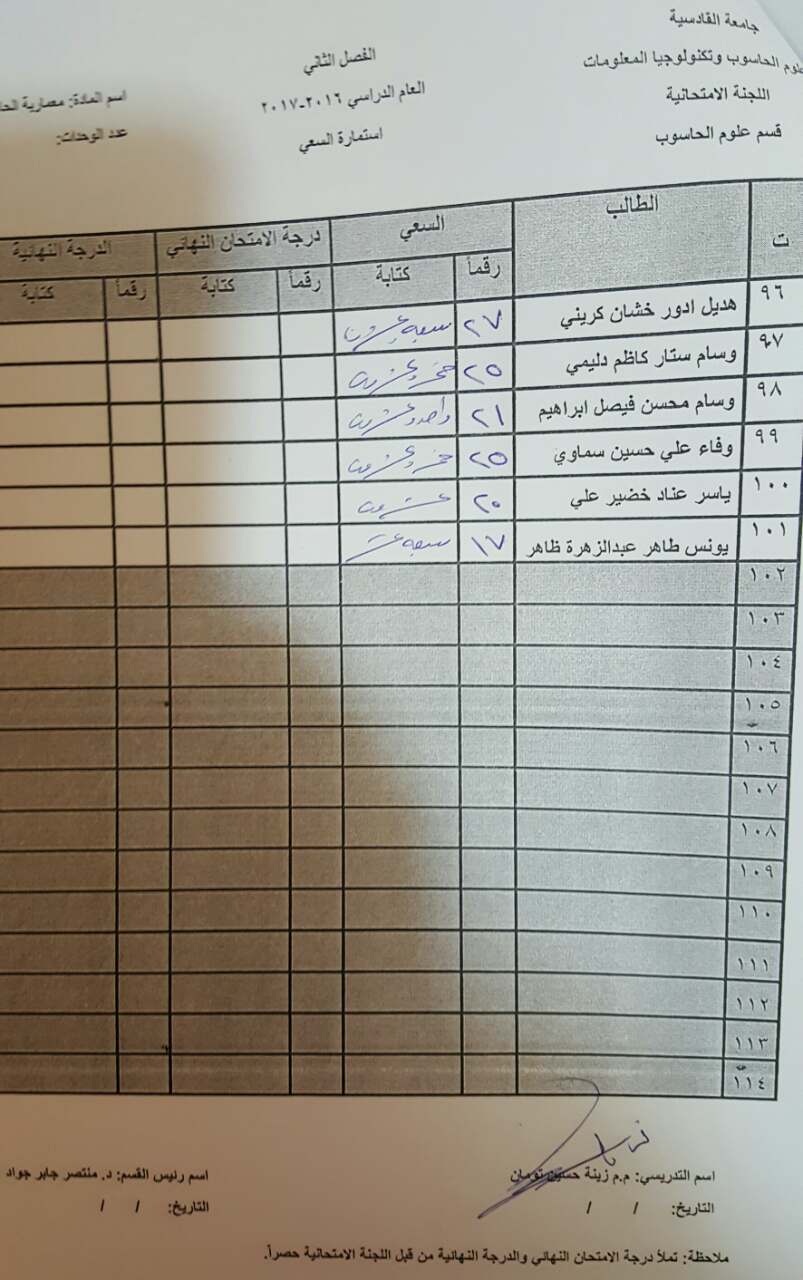 جامعة القادسية
علوم الحاسوب وتكنولوجيا المعلومات
اللجنة الامتحانية
قسم علوم الحاسوب
الفصل الثاني
العام الدراسي ٢٠١٦-٢٠١٧
استمارة السعي
اسم المادة: معمارية
عدد الوحدات:
ت الطالب السعي درجة الامتحان النهائي الدرجة النهائية
رقماً كتابة رقماً كتابة رقماً كتابة
٩٦ هديل ادور خشان كريني ٢٧ سبعة وعشرون
٩٧ وسام ستار كاظم دليمي ٢٥ خمسة وعشرون
٩٨ وسام محسن فيصل ابراهيم ٢١ واحد وعشرون
٩٩ وفاء علي حسين سماوي ٢٥ خمسة وعشرون
١٠٠ ياسر عناد خضير علي ٢٠ عشرون
١٠١ يونس طاهر عبدالزهرة ظاهر ١٧ سبعة عشر
١٠٢
١٠٣
١٠٤
١٠٥
١٠٦
١٠٧
١٠٨
١٠٩
١١٠
١١١
١١٢
١١٣
١١٤
اسم التدريسي: م.م زينة حسين تومان
التاريخ: / /
اسم رئيس القسم: د. منتصر جابر جواد
التاريخ: / /
ملاحظة: تملأ درجة الامتحان النهائي والدرجة النهائية من قبل اللجنة الامتحانية حصراً.